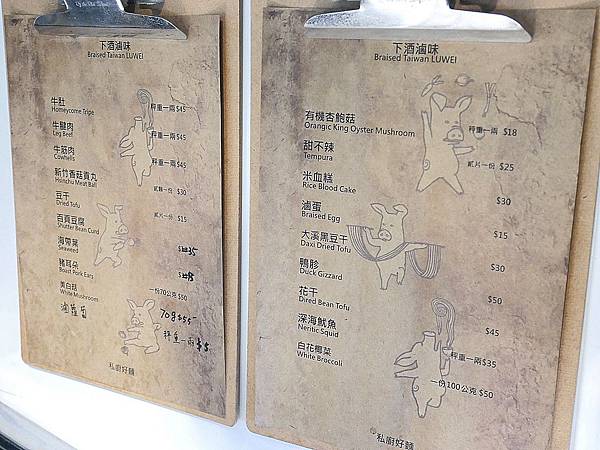 下酒滷味
Braised Taiwan LUWEI
牛肚
Honeycome Tripe
秤重一兩 $45
牛腱肉
Leg Beef
秤重一兩 $45
牛筋肉
Cowhells
秤重一兩 $45
新竹香菇貢丸
Hsinchu Meat Ball
貳顆一份 $30
豆干
Dried Tofu
貳片一份 $15
百頁豆腐
Shutter Bean Curd
海帶葉
Seaweed
豬耳朵
Boast Pork Ears
美白菇
White Mushroom
一份70公克 $50
滷蘿蔔
70g $55
秤重一兩 $5
私廚好麵
下酒滷味
Braised Taiwan LUWEI
有機杏鮑菇
Orangic King Oyster Mushroom
秤重一兩 $18
甜不辣
Tempura
貳片一份 $25
米血糕
Rice Blood Cake
$30
滷蛋
Braised Egg
$15
大溪黑豆干
Daxi Dried Tofu
$30
鴨胗
Duck Gizzard
$50
花干
Dired Bean Tofu
$45
深海魷魚
Neritic Squid
秤重一兩$35
白花椰菜
White Broccoli
一份100公克 $50
私廚好麵